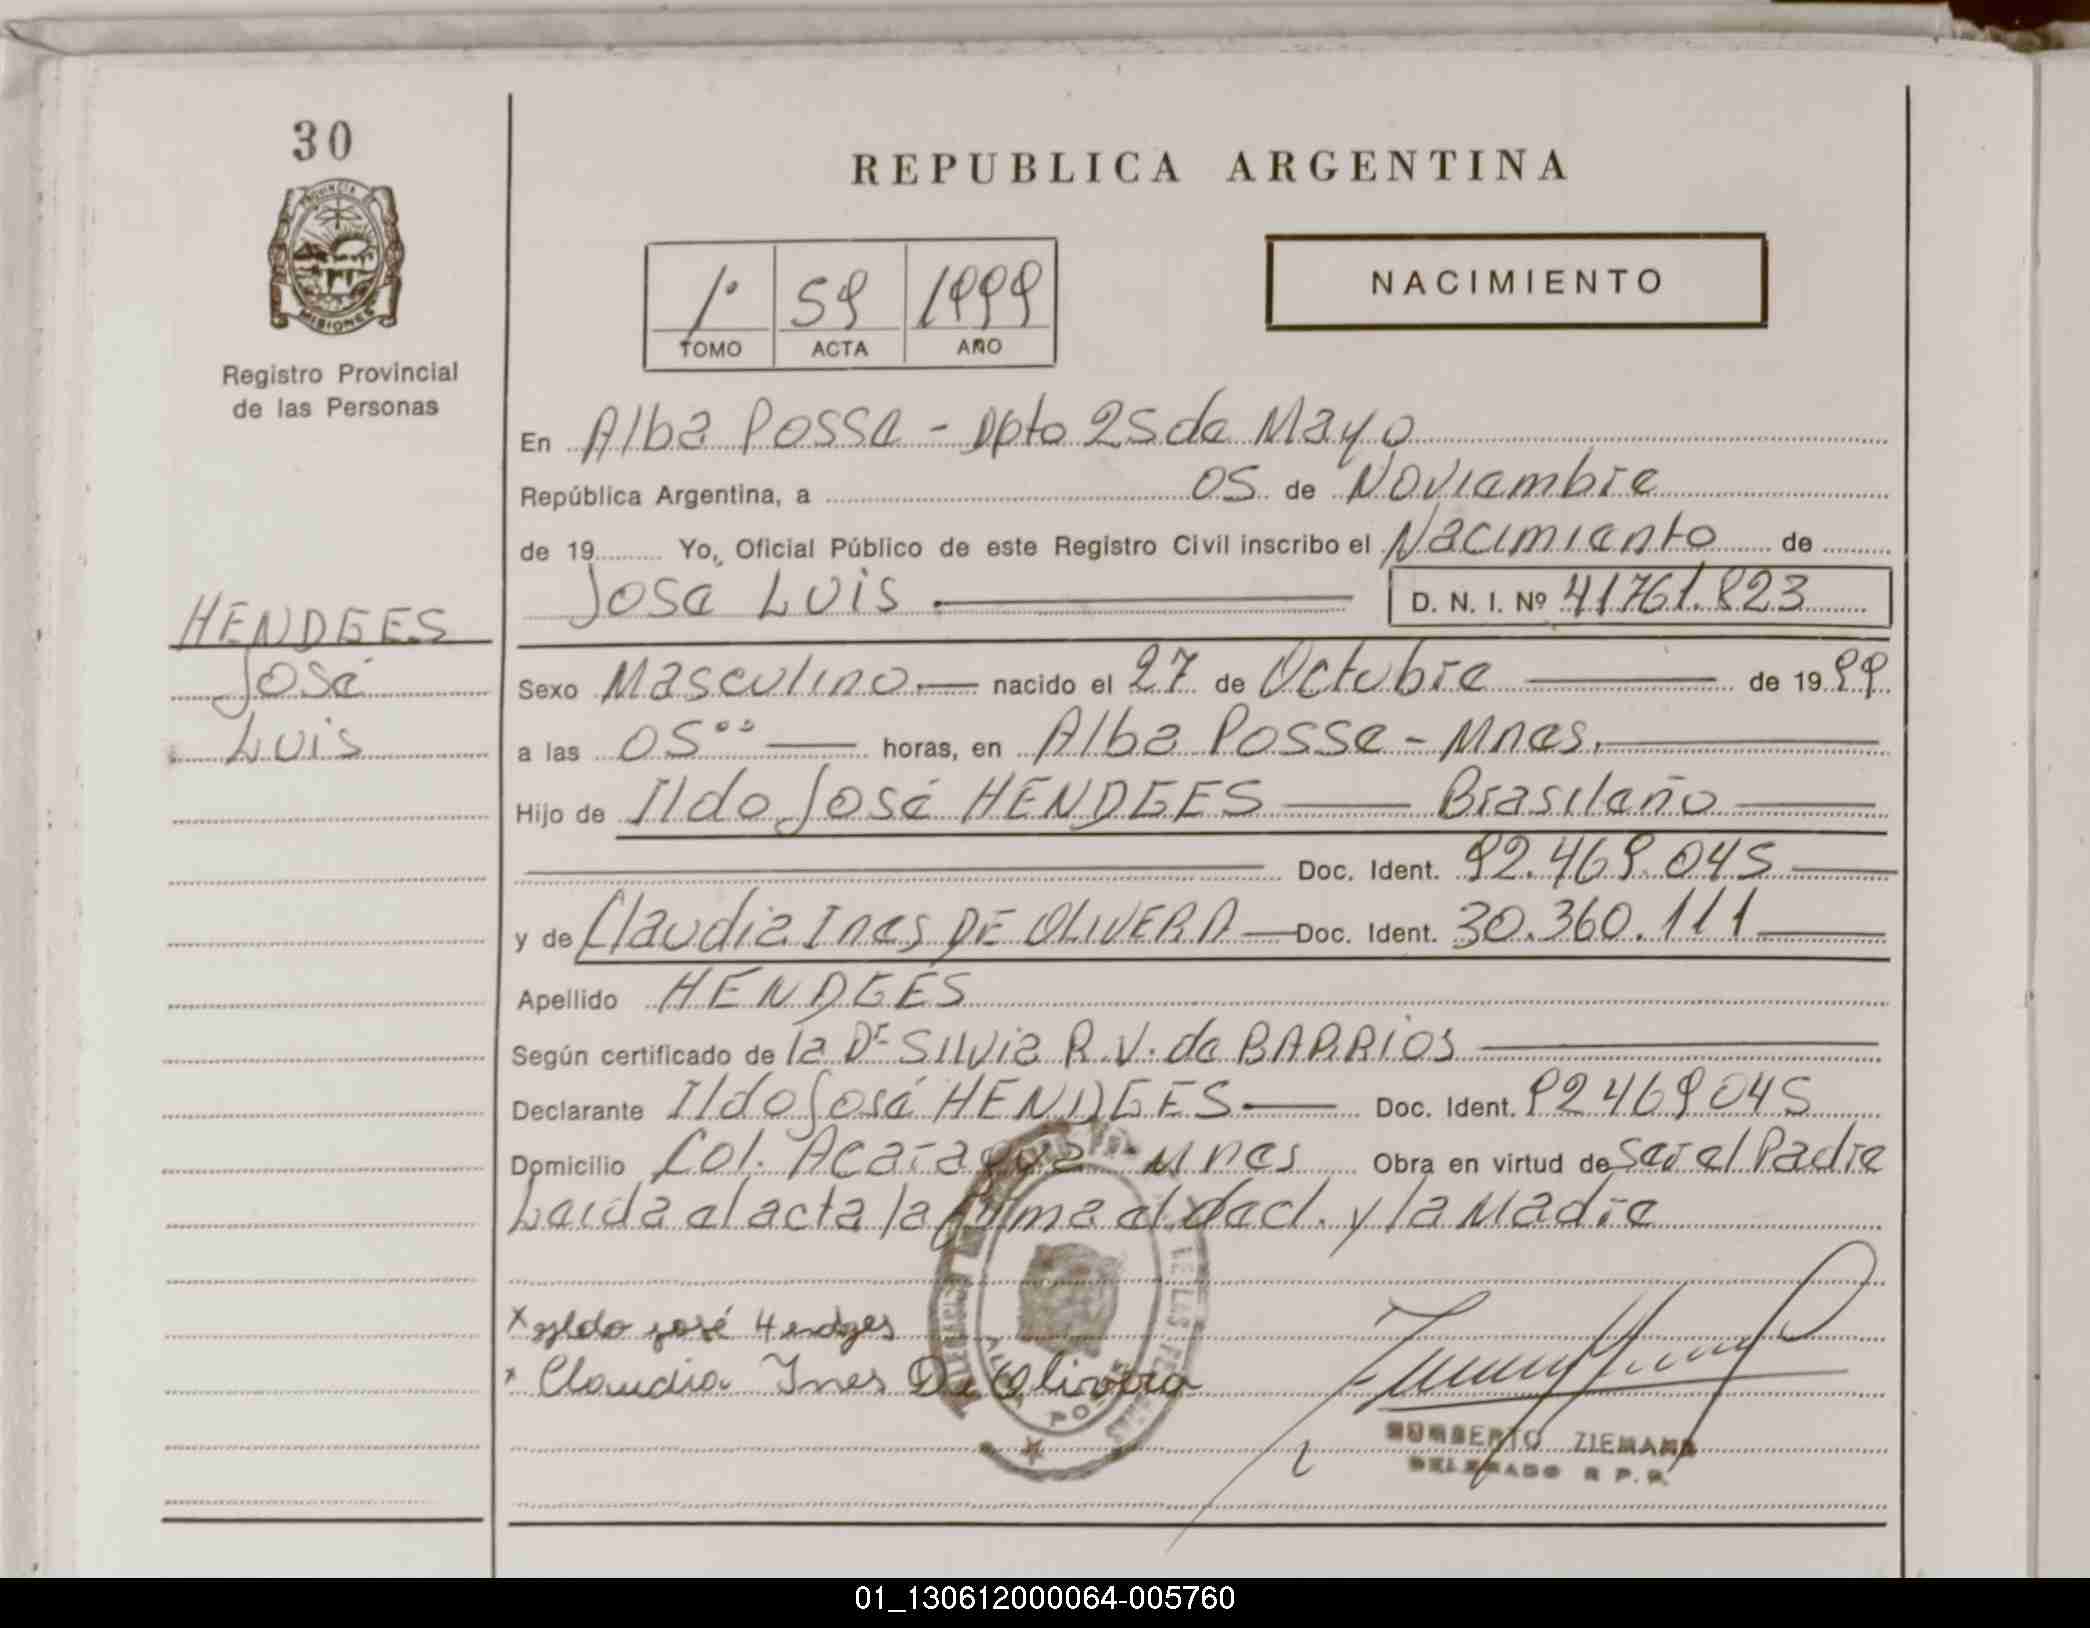 30
REPUBLICA ARGENTINA
PROVINCIA
MISIONES
Registro Provincial
de las Personas
1º 59 1999
TOMO ACTA AÑO
NACIMIENTO
En Alba Posse - Dpto 25 de Mayo
República Argentina, a 05 de Noviembre
de 19 Yo, Oficial Público de este Registro Civil inscribo el Nacimiento de
Jose Luis D. N. I. Nº 41761.823
HENDGES
José
Luis
Sexo Masculino nacido el 27 de Octubre de 1999
a las 05°° horas, en Alba Posse - Mnes.
Hijo de Ildo José HENDGES Brasileño
Doc. Ident. 92.469.045
y de Claudia Ines DE OLIVERA Doc. Ident. 30.360.111
Apellido HENDGES
Según certificado de la Dr Silvia R. V. de BARRIOS
Declarante Ildo José HENDGES Doc. Ident. 92469045
Domicilio Col. Acaragua Mnes Obra en virtud de Ser el Padre
Leida el acta la firma el decl. y la Madre
x Ildo josé Hendges
x Claudia Ines De Olivera
DE LAS PERSONAS
ALBA POSSE
HUMBERTO ZIEMANN
DELEGADO R. P. P.
01_130612000064-005760